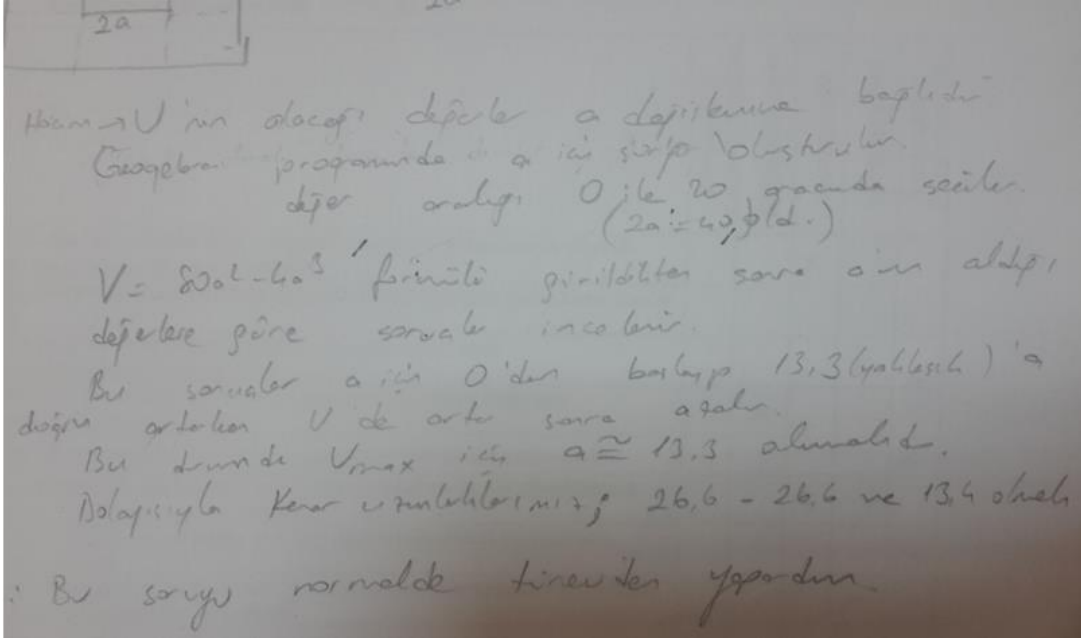 2a
2a
Hacim → V'nin alacağı değerler a değişkenine bağlıdır
Geogebra programında a için sürgü oluşturulur.
değer aralığı 0 ile 20 arasında seçilir.
(2a = 40,
V = 80a² - 4a³ formülü girildikten sonra a'nın aldığı
değerlere göre sonuçlar incelenir.
Bu sonuçlar a için 0'dan başlayıp 13,3 (yaklaşık)'a
doğru artarken V de artar sonra azalır.
Bu durumda Vmax için a ≅ 13,3 alınmalıdır.
Dolayısıyla Kenar uzunluklarımız; 26,6 - 26,6 ve 13,4 olmalı
: Bu soruyu normalde türevden yapardım.